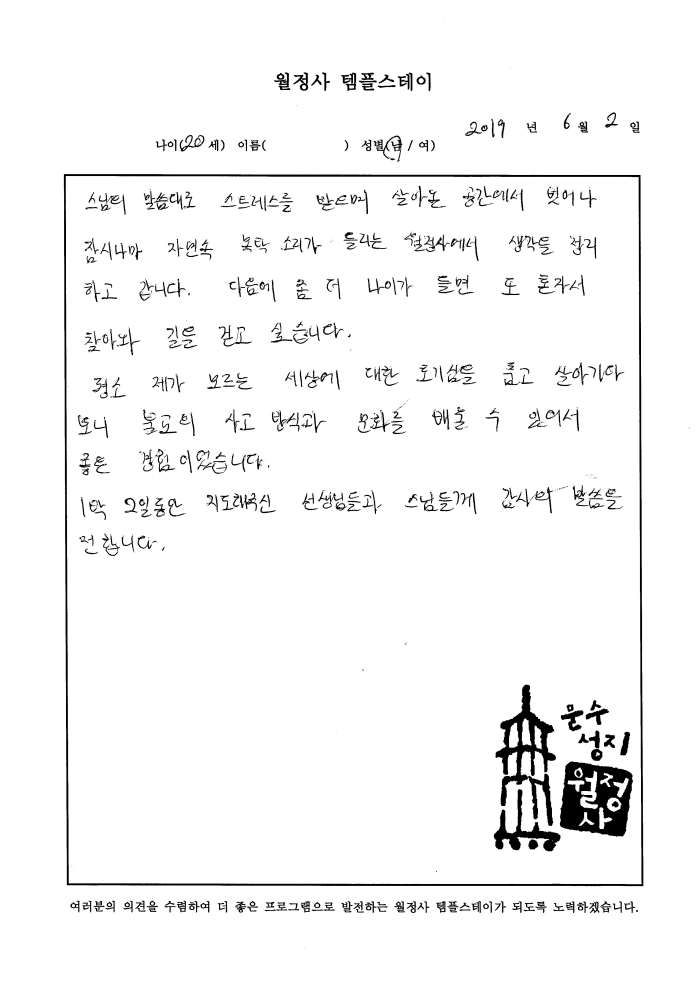 월정사 템플스테이
2019 년 6 월 2 일
나이(20세) 이름( ) 성별(남/여)
스님의 말씀대로 스트레스를 받으며 살아온 공간에서 벗어나
잠시나마 자연속 목탁 소리가 들리는 월정사에서 생각들 정리
하고 갑니다. 다음에 좀 더 나이가 들면 또 혼자서
찾아와 길을 걷고 싶습니다.
평소 제가 모르는 세상에 대한 호기심을 품고 살아가다
보니 불교의 사고 방식과 문화를 배울 수 있어서
좋은 경험이었습니다.
1박 2일동안 지도해주신 선생님들과 스님들께 감사의 말씀을
전합니다.
문수
성지
월정
사
여러분의 의견을 수렴하여 더 좋은 프로그램으로 발전하는 월정사 템플스테이가 되도록 노력하겠습니다.